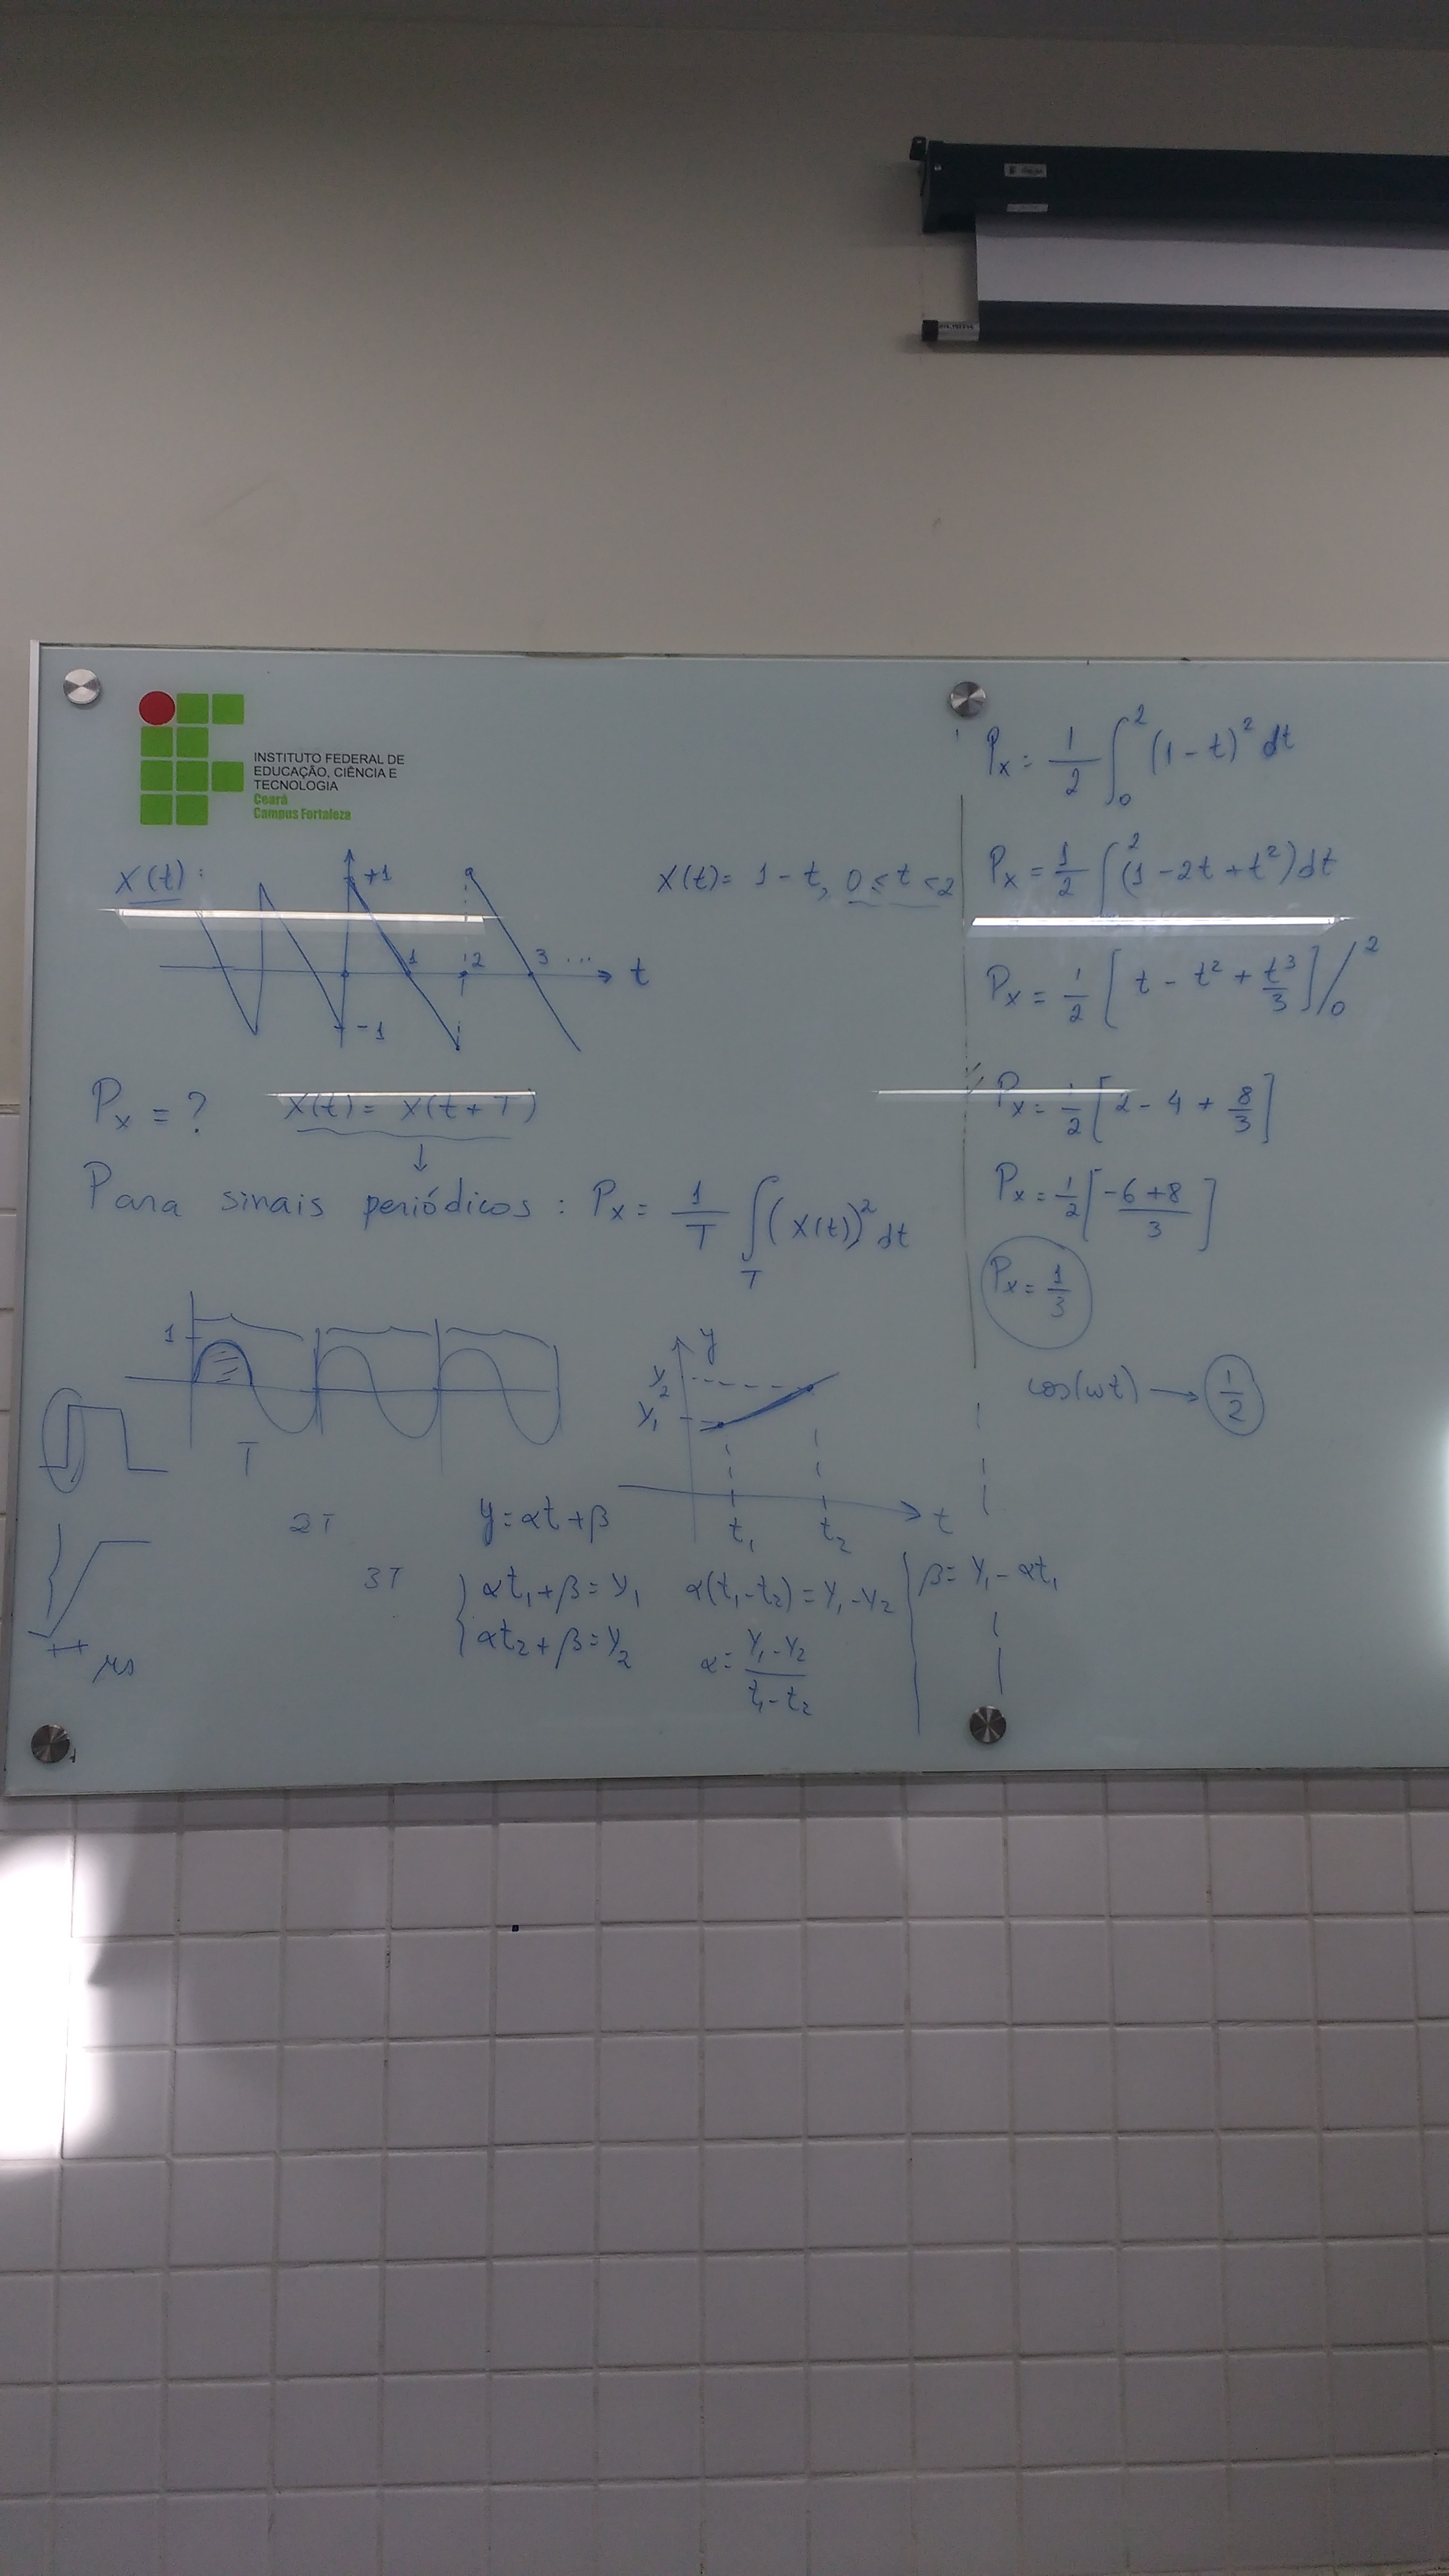 INSTITUTO FEDERAL DE
EDUCAÇÃO, CIÊNCIA E
TECNOLOGIA
Ceará
Campus Fortaleza
x(t):
+1
1
2
3 ...
t
-1
x(t) = 1 - t, 0 ≤ t < 2
Px = ?
x(t) = x(t + T)
↓
Para sinais periódicos : Px = 1/T ∫_T (x(t))² dt
1
T
2T
3T
μs
y
y2
y1
t1
t2
t
y = αt + β
αt1 + β = y1
αt2 + β = y2
α(t1 - t2) = y1 - y2
α = (y1 - y2)/(t1 - t2)
β = y1 - αt1
Px = 1/2 ∫_0^2 (1 - t)² dt
Px = 1/2 ∫^2 (1 - 2t + t²) dt
Px = 1/2 [t - t² + t³/3] /_0^2
Px = 1/2 [2 - 4 + 8/3]
Px = 1/2 [(-6 + 8)/3]
Px = 1/3
cos(ωt) → 1/2